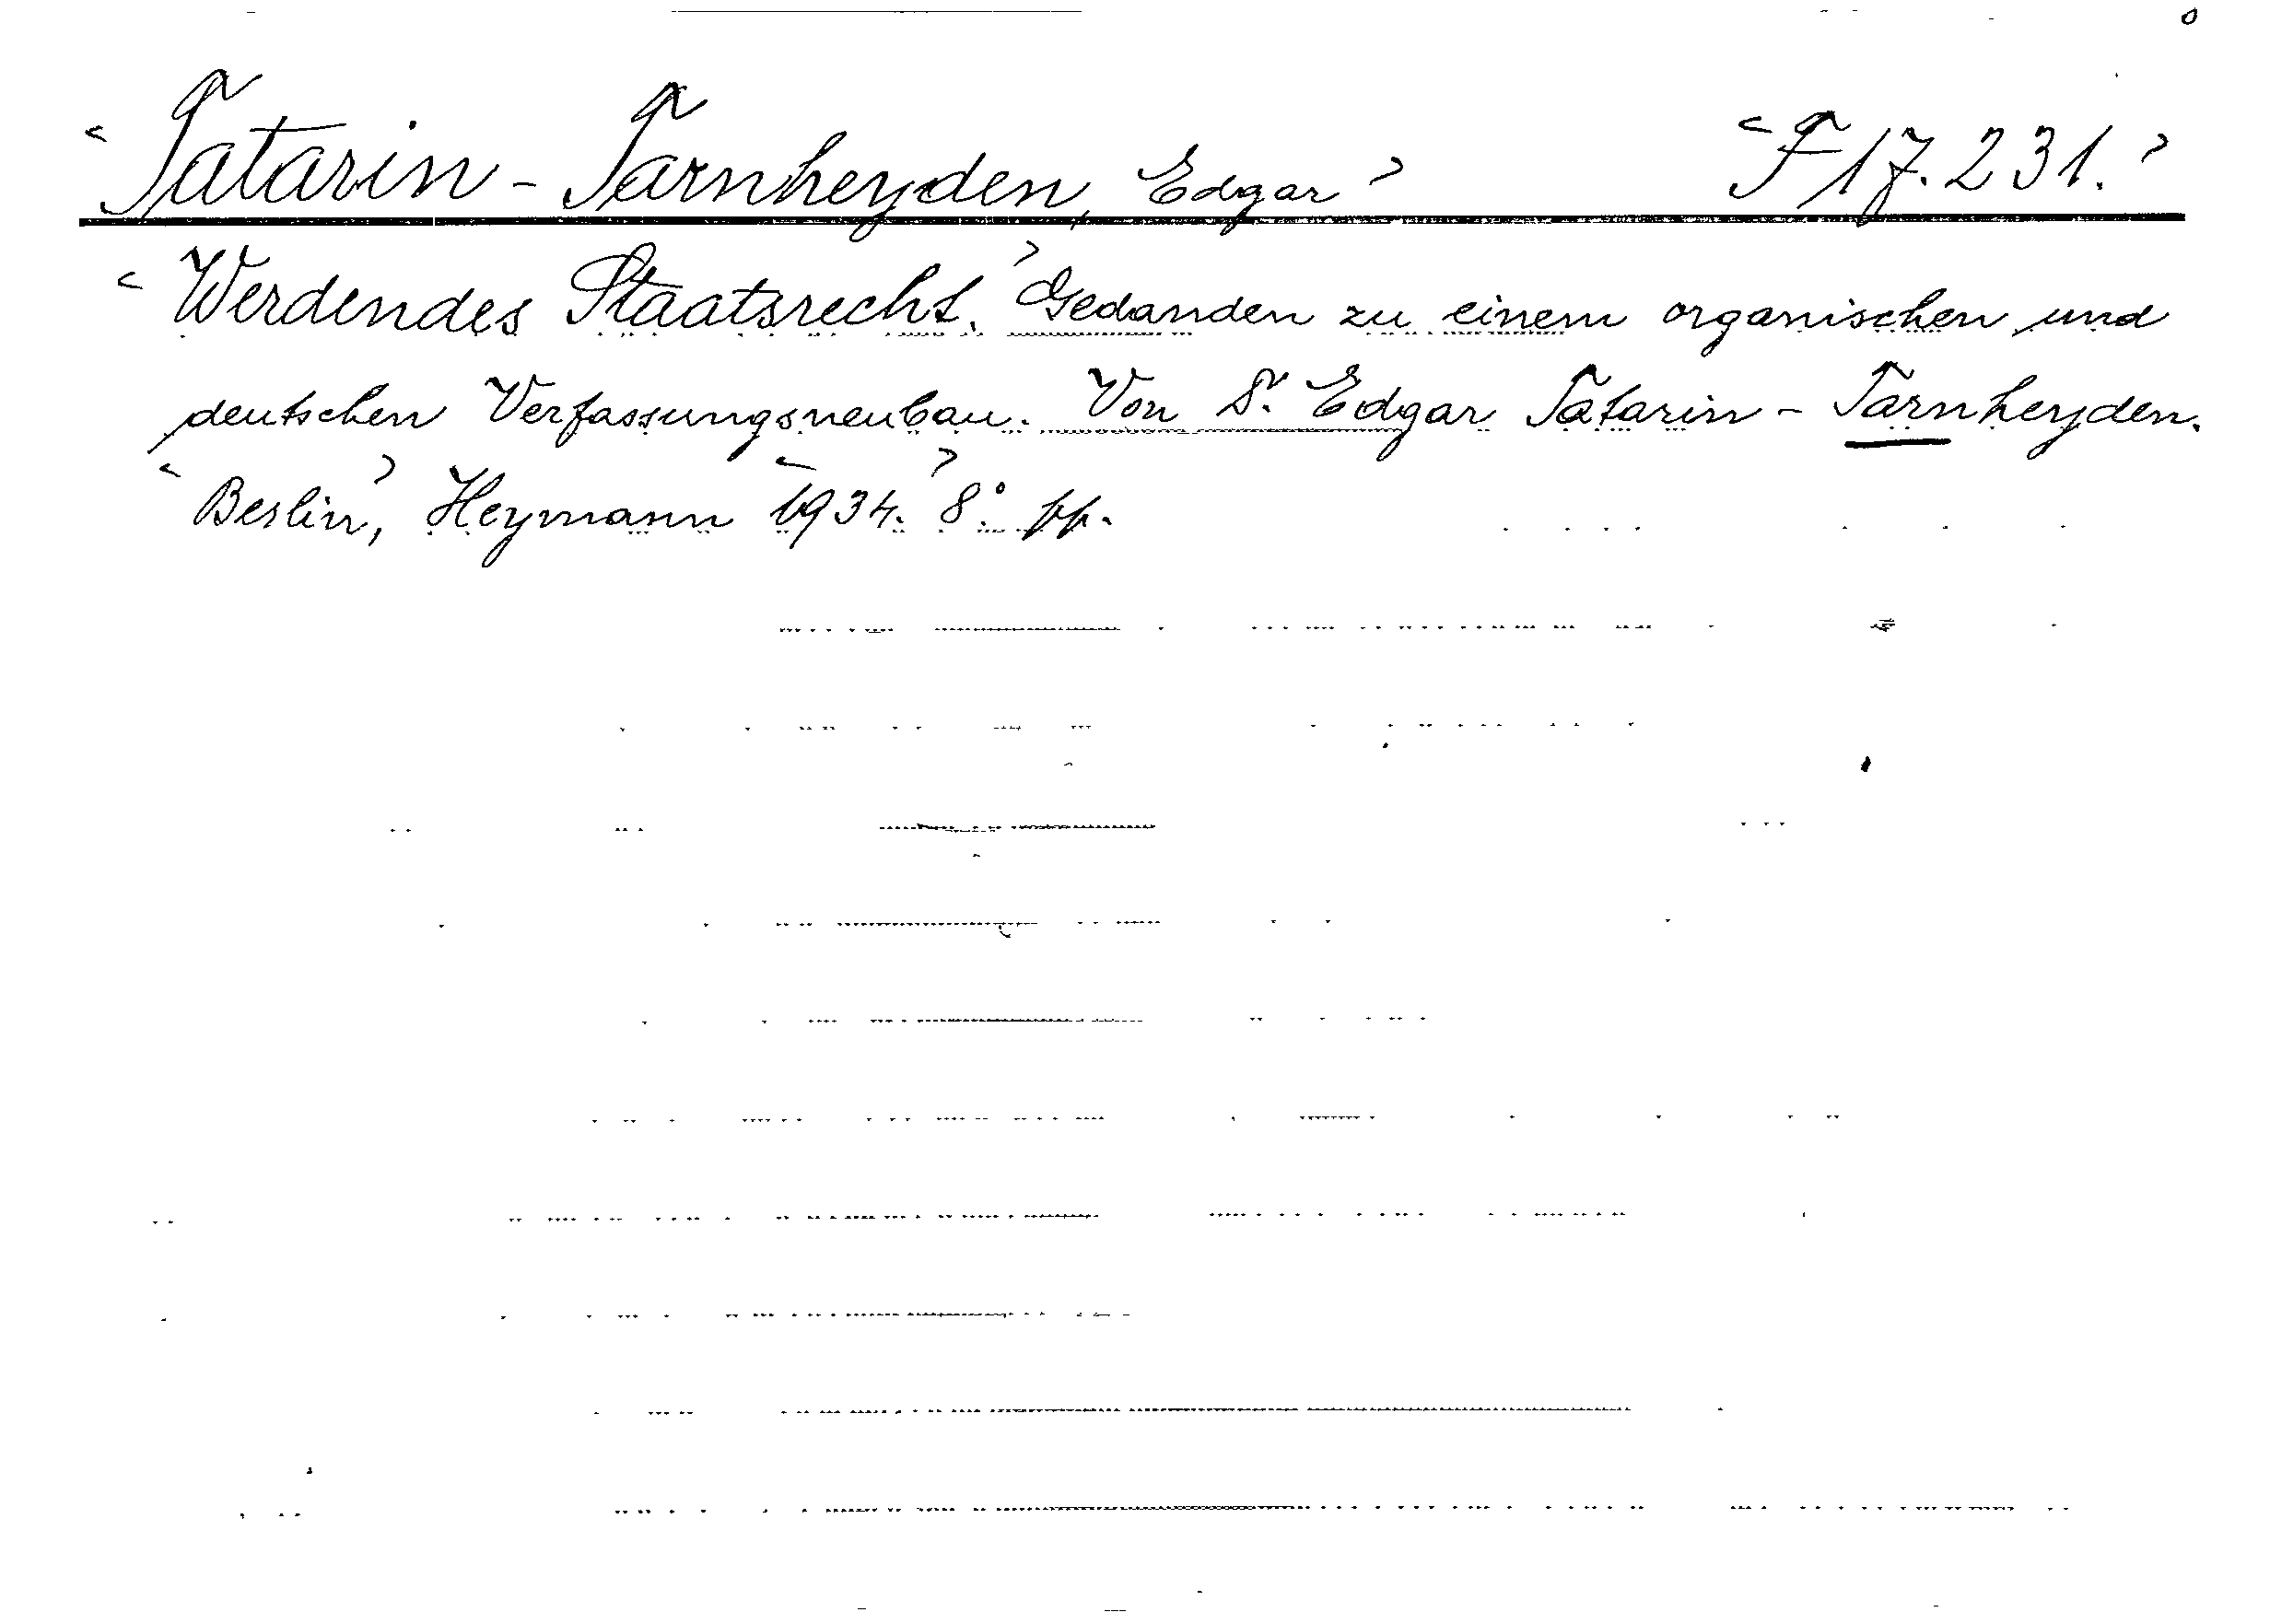 ‹ Tatarin - Tarnheyden, Edgar › ‹ F 17.231. ›
‹ Werdendes Staatsrecht. › Gedanden zu einem organischen und
deutschen Verfassungsneubau. Von Dr. Edgar Tatarin - Tarnheyden.
‹ Berlin ›, Heymann ‹ 1934. › 8° pp.